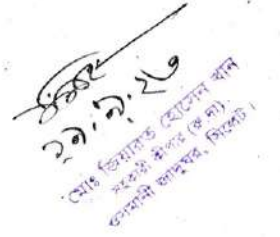 ২৭.৭.২৩
মোঃ জিয়ারত হোসেন খান
সহকারী কীপার (রু দা)
ওসমানী জাদুঘর, সিলেট।